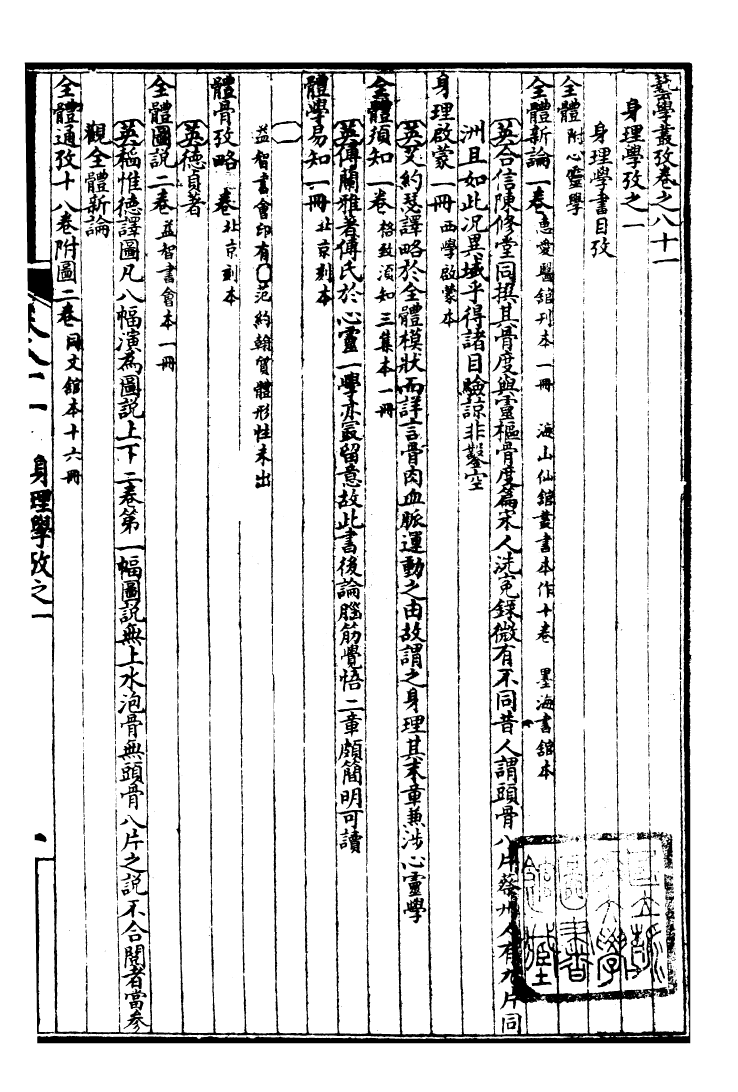 藝學叢攷卷之八十一
身理學攷之一
身理學書目攷
全體附心靈學
全體新論一卷惠愛醫館刊本一冊 海山仙館叢書本作十卷 墨海書館本
英合信陳修堂同撰其骨度與靈樞骨度篇宋人洗冤錄微有不同昔人謂頭骨八片蔡州人有九片同
洲且如此况異域乎得諸目驗諒非鑿空
身理啟蒙一冊西學啟蒙本
英艾約瑟譯略於全體模狀而詳言骨肉血脈運動之由故謂之身理其末章兼涉心靈學
全體須知一卷格致須知三集本一冊
英傅蘭雅著傅氏於心靈一學亦最留意故此書後論腦筋覺悟二章頗簡明可讀
體學易知一冊北京刻本
益智書會印有范約翰質體形性未出
體骨攷略一卷北京刻本
英德貞著
全體圖說二卷益智書會本一冊
英稻惟德譯圖凡八幅演為圖說上下二卷第一幅圖說無上水泡骨無頭骨八片之說不合閱者當參
觀全體新論
全體通攷十八卷附圖二卷同文館本十六冊
身理學攷之一